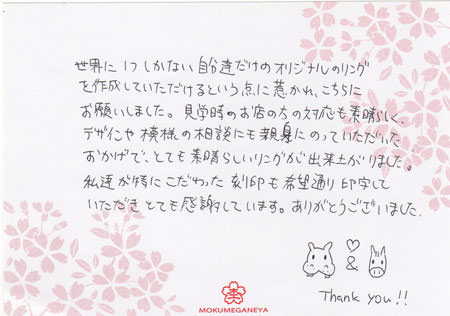 世界に1つしかない自分達だけのオリジナルのリング
を作成していただけるという点に惹かれ、こちらに
お願いしました。見学時のお店の方の対応も素晴らしく、
デザインや模様の相談にも親身にのっていただいた
おかげで、とても素晴らしいリングが出来上がりました。
私達が特にこだわった刻印も希望通り印字して
いただきとても感謝しています。ありがとうございました.
&
Thank you!!
MOKUMEGANEYA